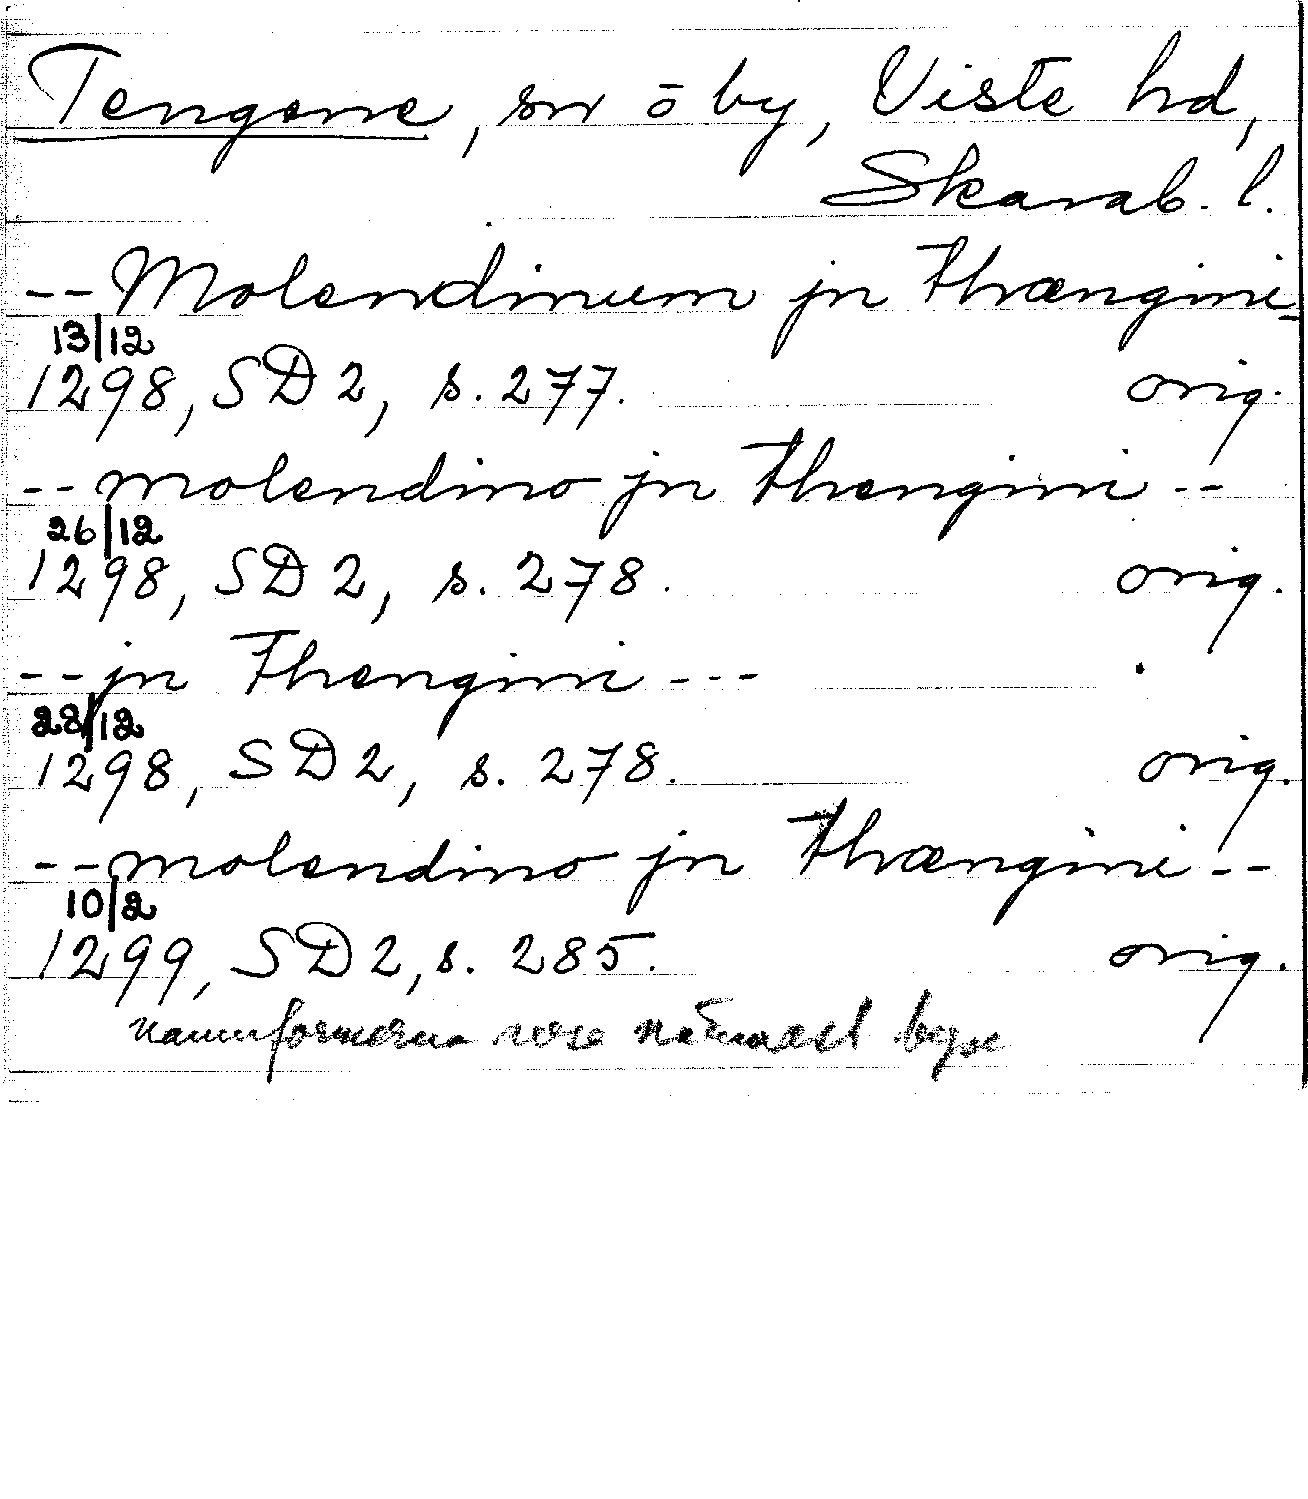 Tengene, sn ō by, Viste hd,
Skarab. l.
-- Molendinum jn thrængini-
13/12
1298, SD 2, s. 277. orig.
-- molendino jn Thengini --
26/12
1298, SD 2, s. 278. orig.
-- jn Thengini ---
28/12
1298, SD 2, s. 278. orig.
-- molendino jn Thrængini --
10/2
1299, SD 2, s. 285. orig.
namnformerna avse närmast byn